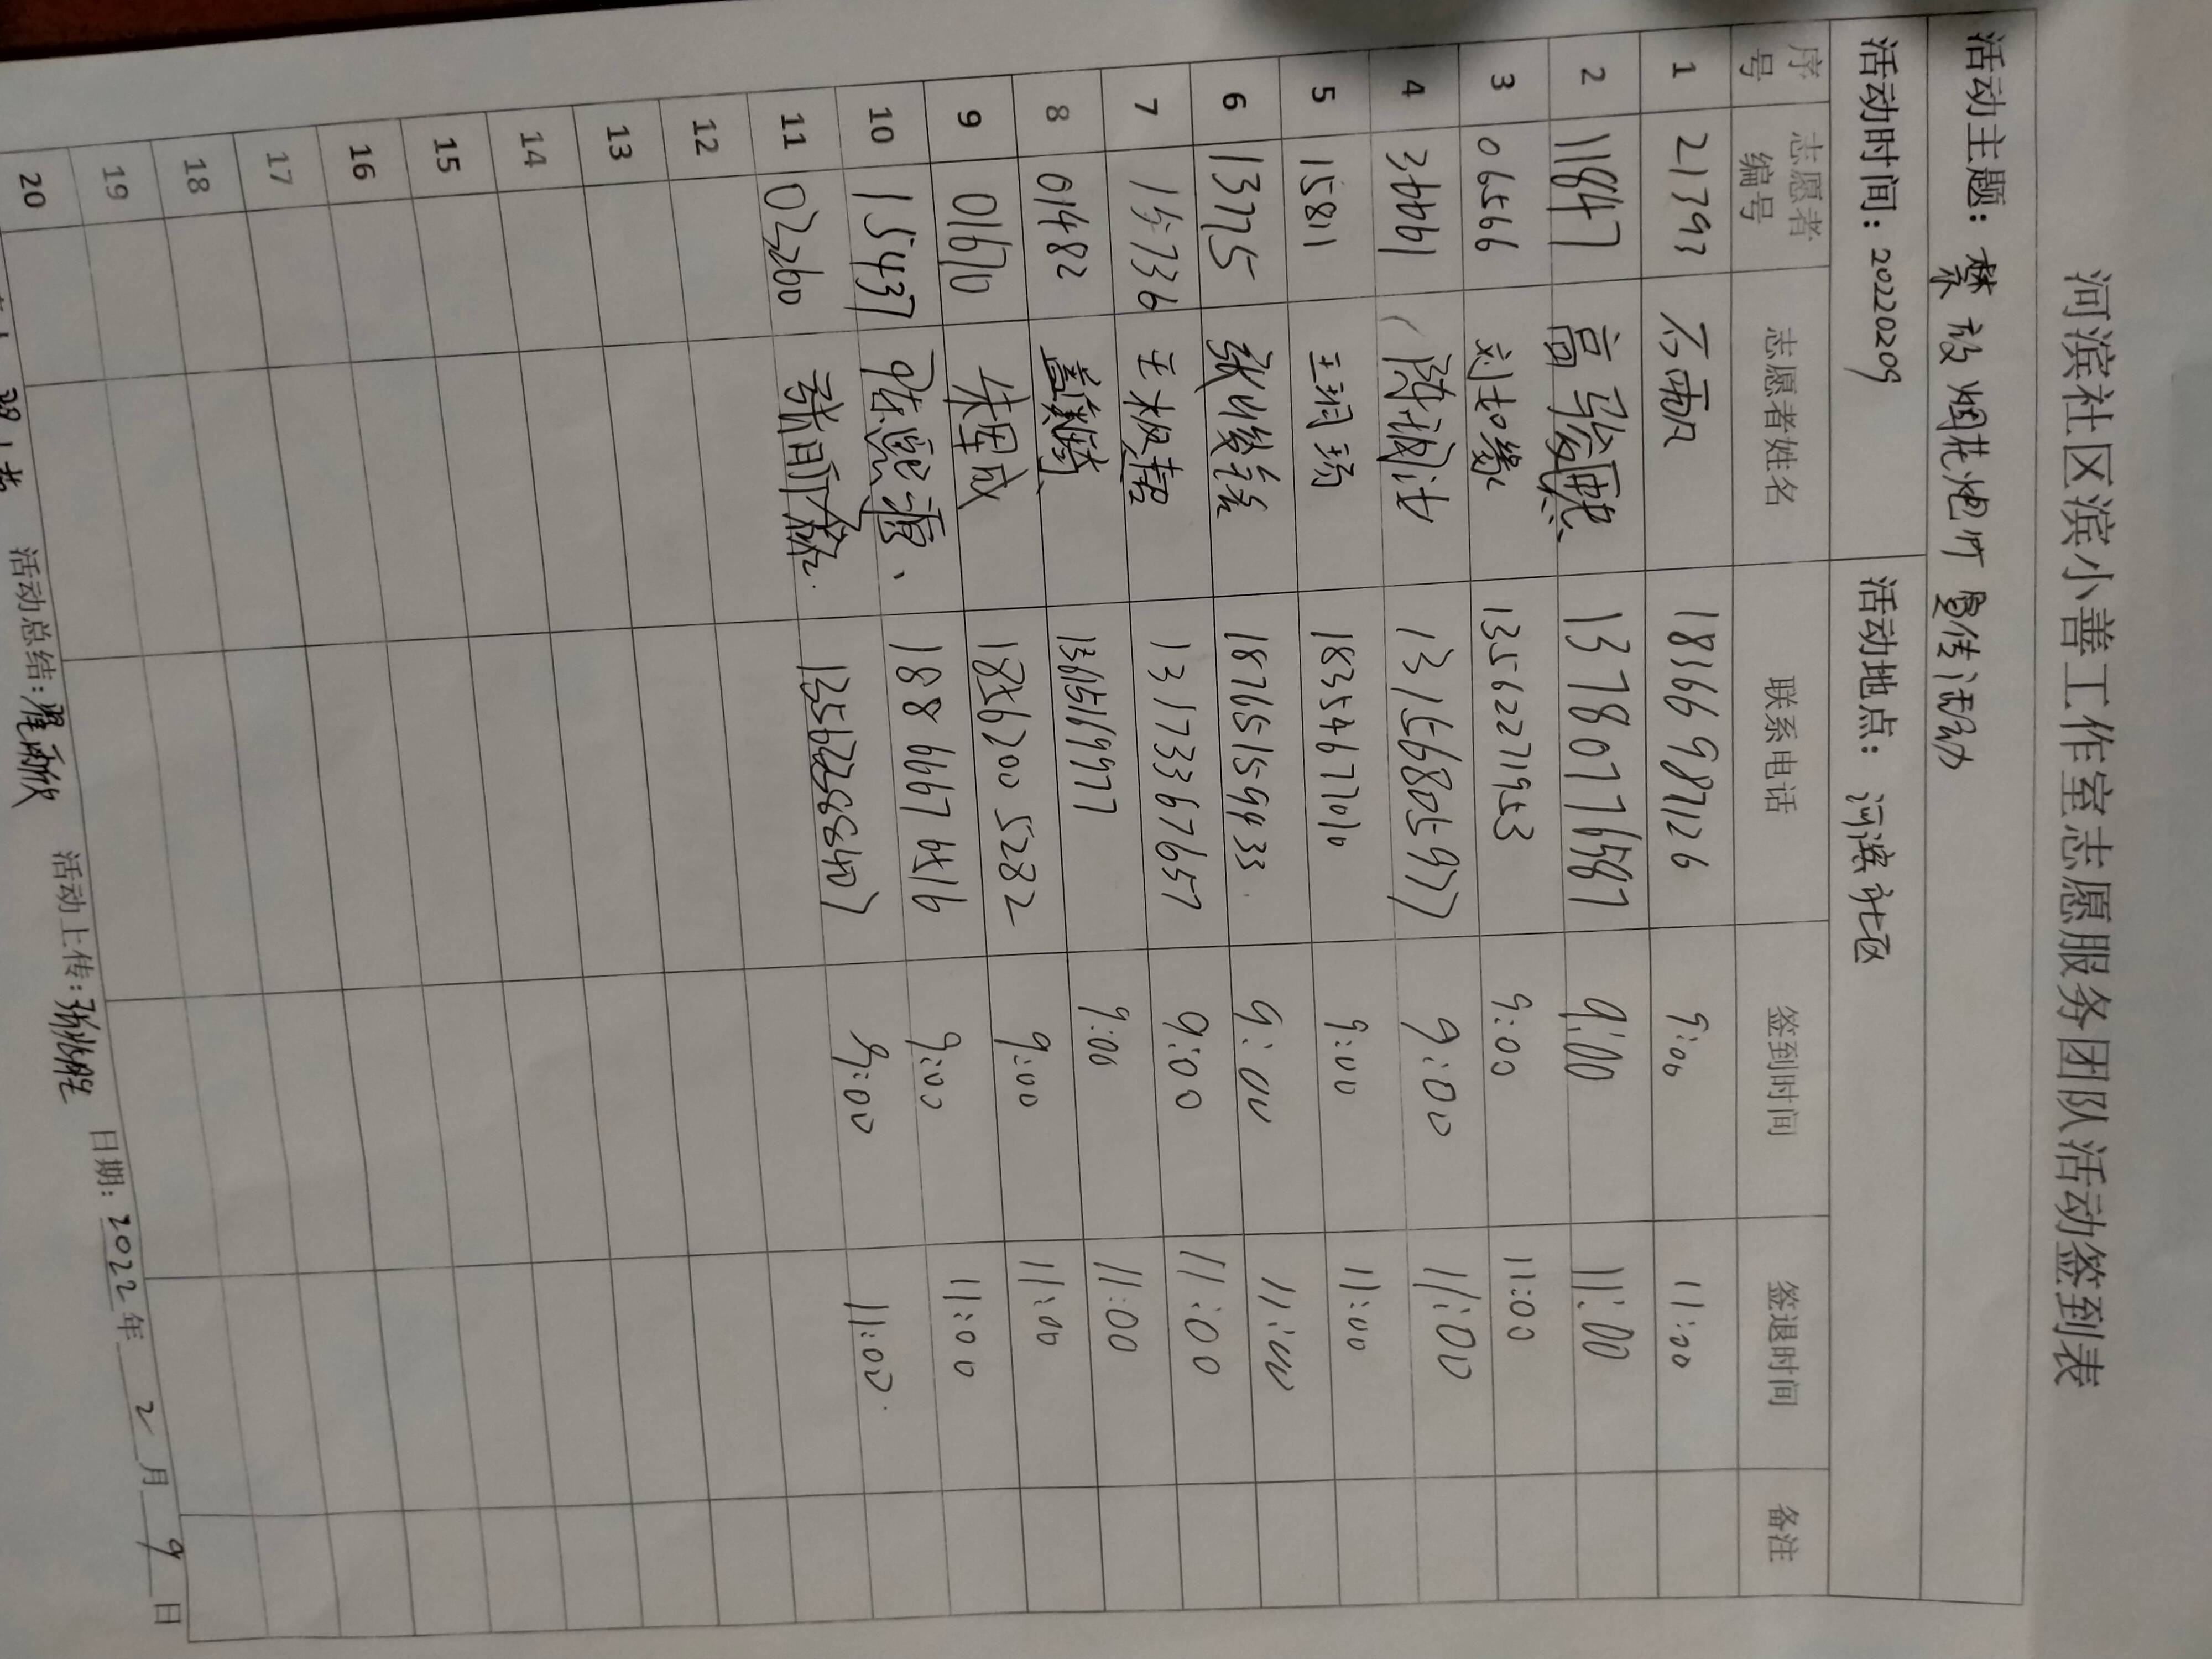 河滨社区滨小善工作室志愿服务团队活动签到表
活动主题：禁放烟花炮竹宣传活动
活动时间：20220209 活动地点：河滨社区
序号 志愿者编号 志愿者姓名 联系电话 签到时间 签退时间 备注
1 21393 18366987126 9:00 11:00
2 11847 高 13780716587 9:00 11:00
3 06566 刘书缘 13562271953 9:00 11:00
4 13156805977 9:00 11:00
5 15811 王玥玚 18354677010 9:00 11:00
6 13775 张峻 18765159433 9:00 11:00
7 15736 王 13173367657 9:00 11:00
8 01482 13615169977 9:00 11:00
9 01670 朱 成 18562005282 9:00 11:00
10 15437 陈 18866676516 9:00 11:00
11 02260 13562288407 9:00 11:00
12
13
14
15
16
17
18
19
20
活动总结：翟 活动上传：张 日期：2022年2月9日